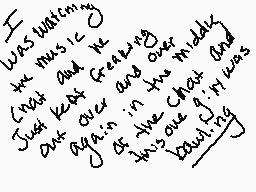 I
was watching
the music
Chat and he
Just kept freaking
out over and over
again in the middle
of the chat and
this one girl was
bawling